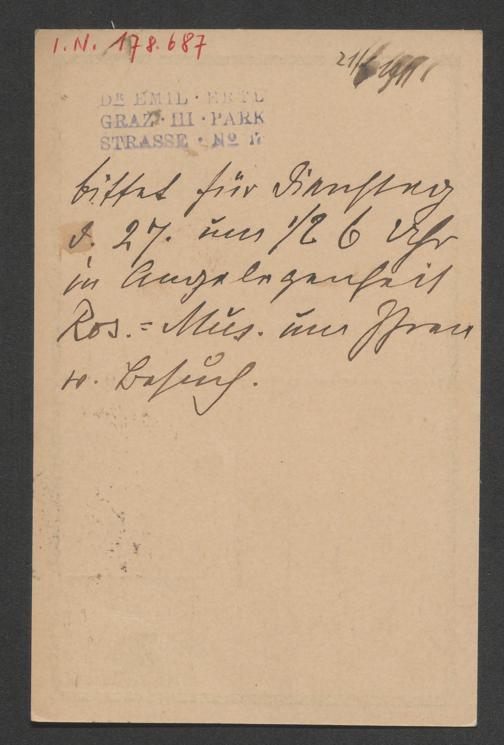 I.N. 178.687
DR EMIL · ERTL
GRAZ · III · PARK
STRASSE · No
bittet für Dienstag
d. 27. um 1/2 6 Uhr
in Angelegenheit
Ros.= Mus. um Ihren
w. Besuch.